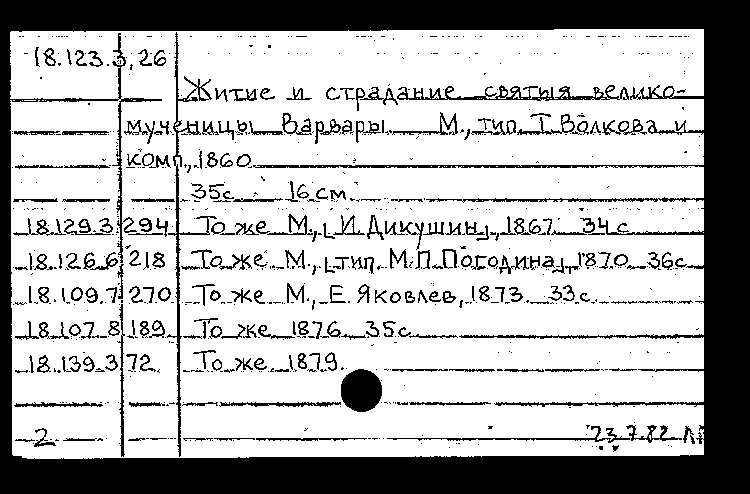 18.123.3,26
Житие и страдание святыя велико-
мученицы Варвары М., тип. Т. Волкова и
комп., 1860.
35с. 16 см.
18.129.3 294 То же М., [И. Дикушин], 1867. 34с.
18.126.6 218 То же М., [тип. М.П. Погодина], 1870 36с.
18.109.7 270 То же М., Е. Яковлев, 1873. 33с.
18.107.8 189. То же 1876. 35с.
18.139.3 72 То же. 1879.
2 23.7.82.